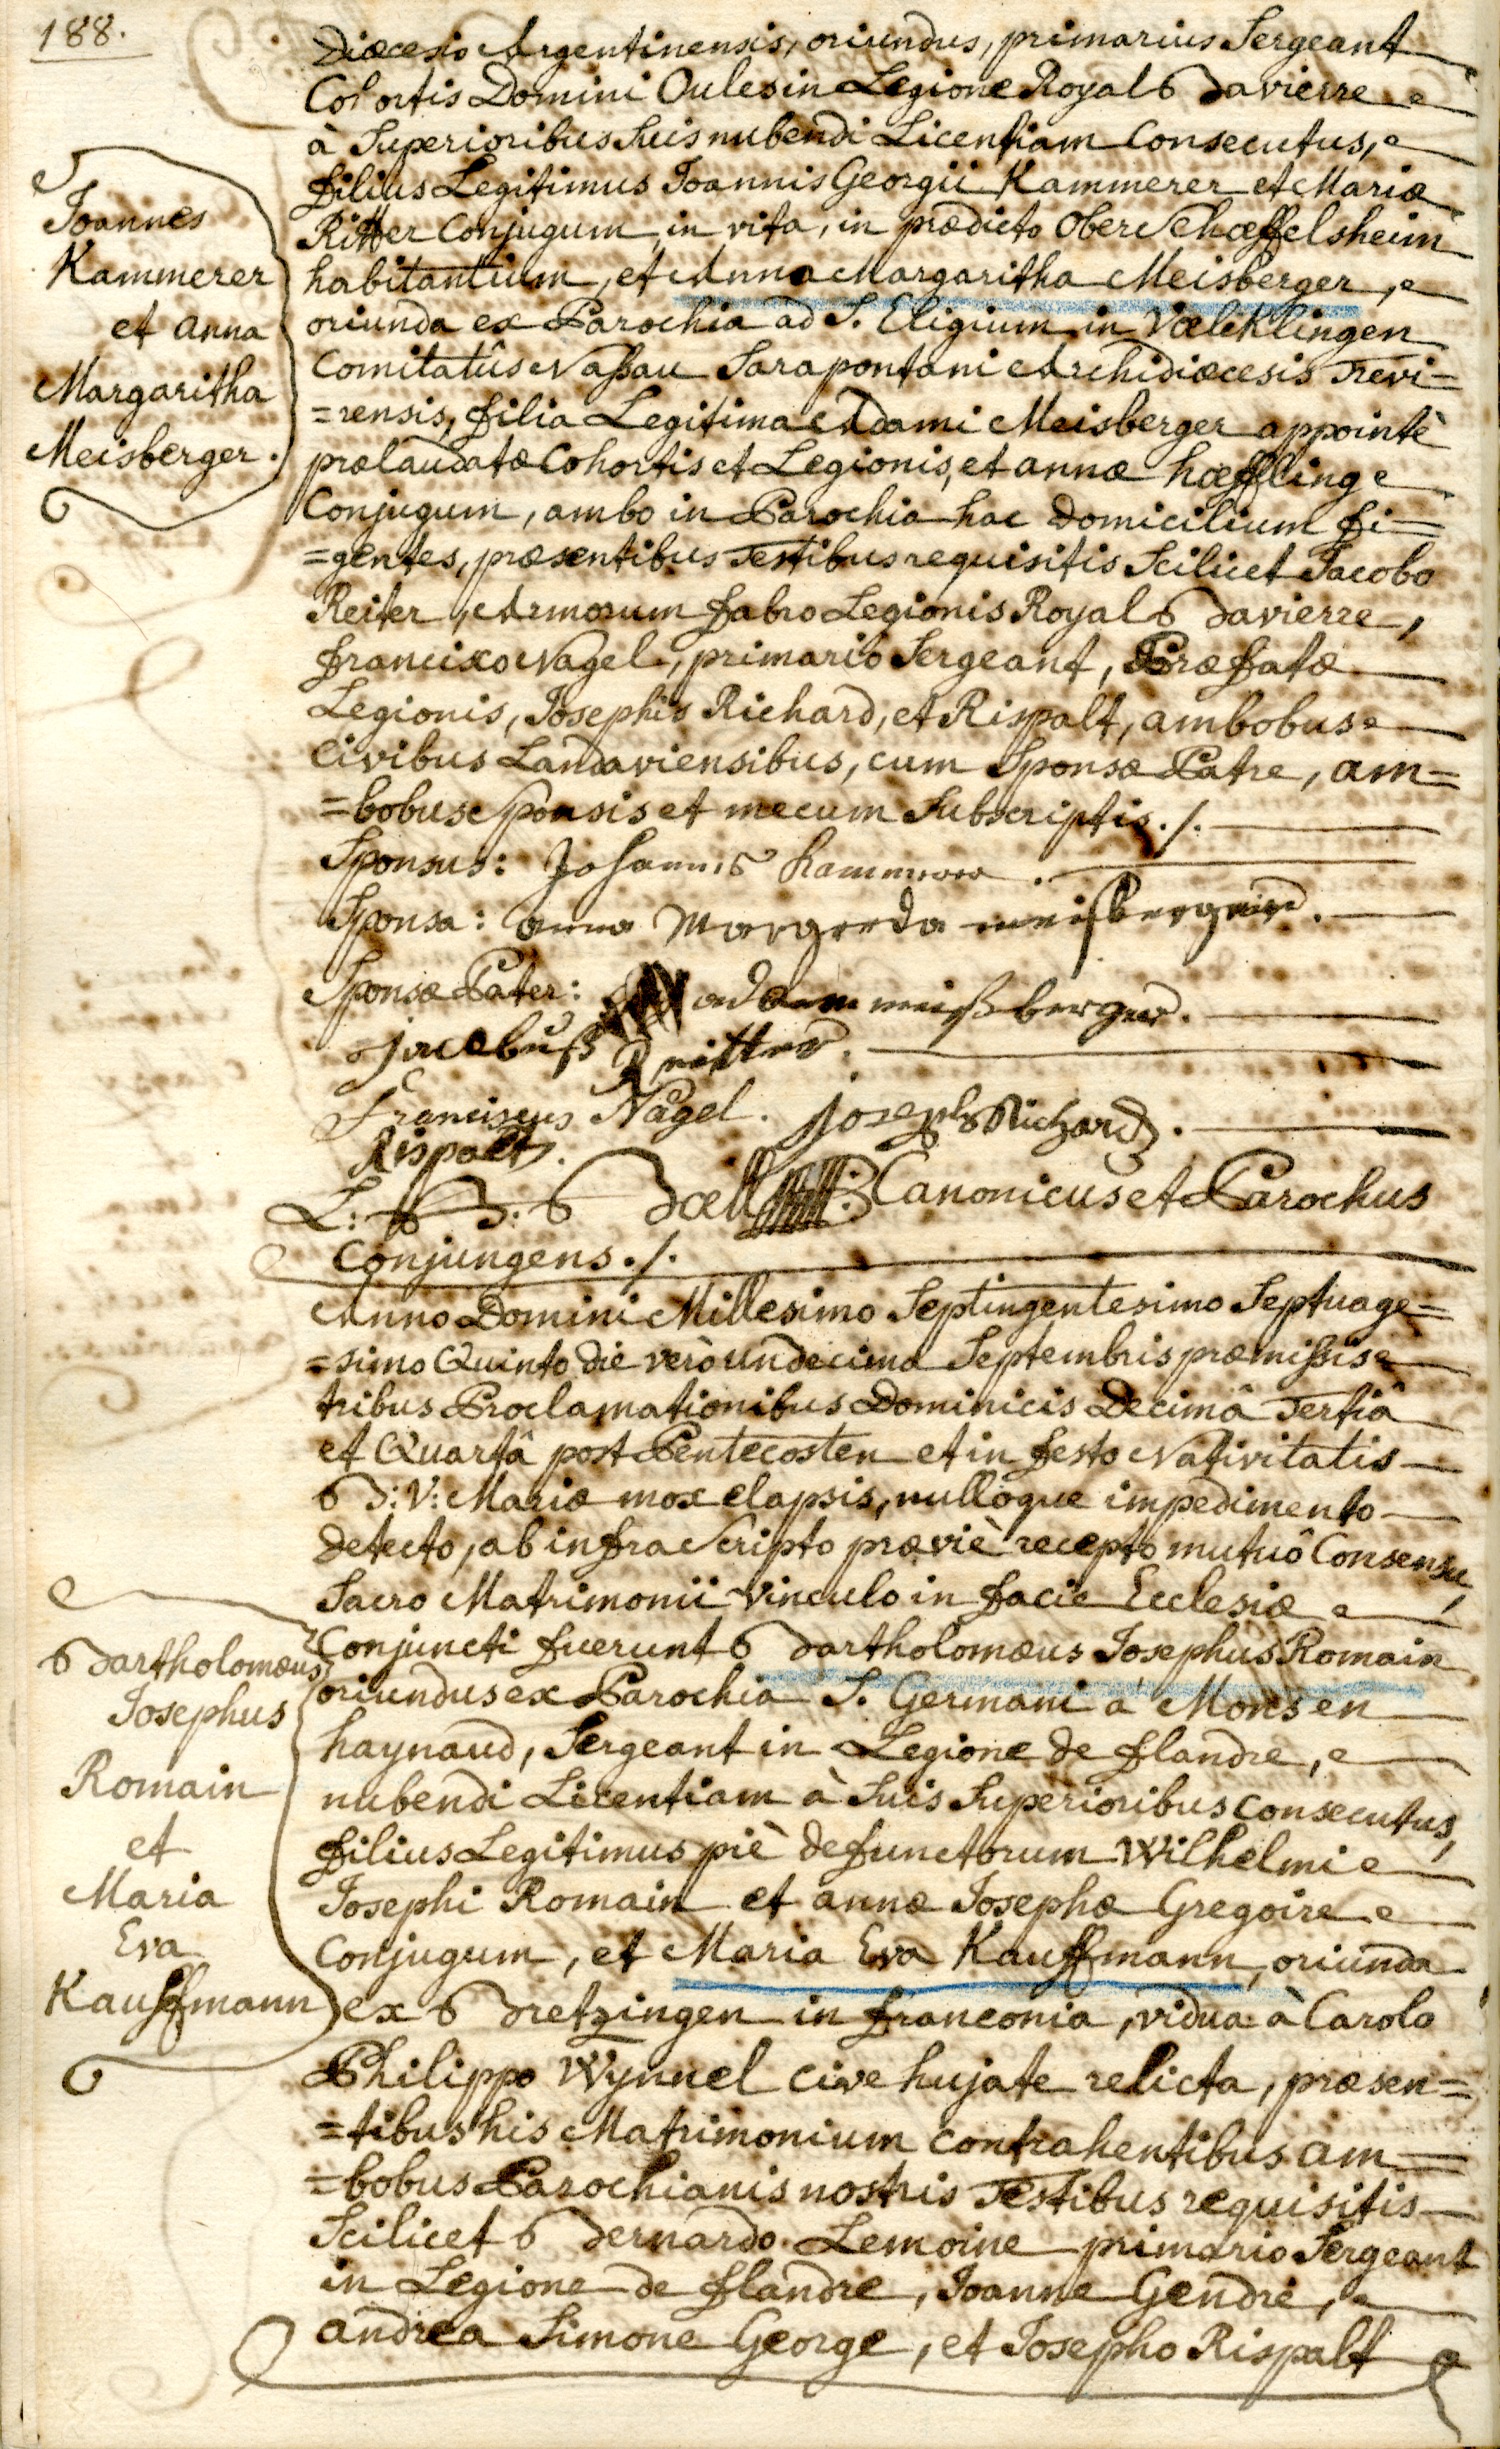 188.
Diœcesis Argentinensis, oriundus, primarius Sergeant
Cohortis Domini Oules in Legione Royal Bavierre
à Superioribus Suis nubendi Licentiam Consecutus,
filius Legitimus Joannis Georgii Kammerer et Mariæ
Ritter Conjugum, in vita, in prædicto Ober Schæffelsheim
habitantium, et Anna Margaritha Meisberger,
oriunda ex Parochia ad S. Eligium in Vælcklingen
Comitatûs Nassau Sarapontani Archidiœcesis Trevi=
=rensis, filia Legitima Adami Meisberger appointè
prælaudatæ Cohortis et Legionis, et annæ hæffling
Conjugum, ambo in Parochia hac Domicilium fi=
=gentes, præsentibus Testibus requisitis Scilicet Jacobo
Reiter, Armorum fabro Legionis Royal Bavierre,
francisco Nagel, primario Sergeant, Præfatæ
Legionis, Josephis Richard, et Rispalt, ambobus
Civibus Landaviensibus, cum Sponsæ Patre, am=
=bobus Sponsis et mecum Subscriptis./.
Joannes
Kammerer
et anna
Margaritha
Meisberger.
Sponsus: Johannes Kammerer.
Sponsa: anna Margreda meisbergerin.
Sponsæ Pater: adam meisberger.
Jacobus Reitter.
Franciscus Nagel. Joseph Richard.
Rispalt.
L: B: Boell Canonicus et Parochus
Conjungens./.
Anno Domini Millesimo Septingentesimo Septuage=
=simo Quinto die verò undecima Septembris præmissis
tribus Proclamationibus Dominicis Decimâ Tertiâ
et Quartâ post Pentecosten et in festo Nativitatis
B: V: Mariæ mox elapsis, nullôque impedimento
detecto, ab infra Scripto præviè recepto mutuô Consensu,
Sacro Matrimonii vinculo in facie Ecclesiæ
Conjuncti fuerunt Bartholomæus Josephus Romain
oriundus ex Parochia S. Germani à Mons en
haynaud, Sergeant in Legione de flandre,
nubendi Licentiam à Suis Superioribus consecutus,
filius Legitimus piè defunctorum Wilhelmi
Josephi Romain et annæ Josephæ Gregoire
Conjugum, et Maria Eva Kauffmann, oriunda
ex Bretzingen in franconia, vidua à Carolo
Philippo Wynnel cive hujate relicta, præsen=
=tibus his Matrimonium contrahentibus am=
=bobus Parochianis nostris Testibus requisitis
Scilicet Bernardo Lemoine primario Sergeant
in Legione de flandre, Joanne Gendre,
andrea Simone George, et Josepho Rispalt
Bartholomæus
Josephus
Romain
et
Maria
Eva
Kauffmann